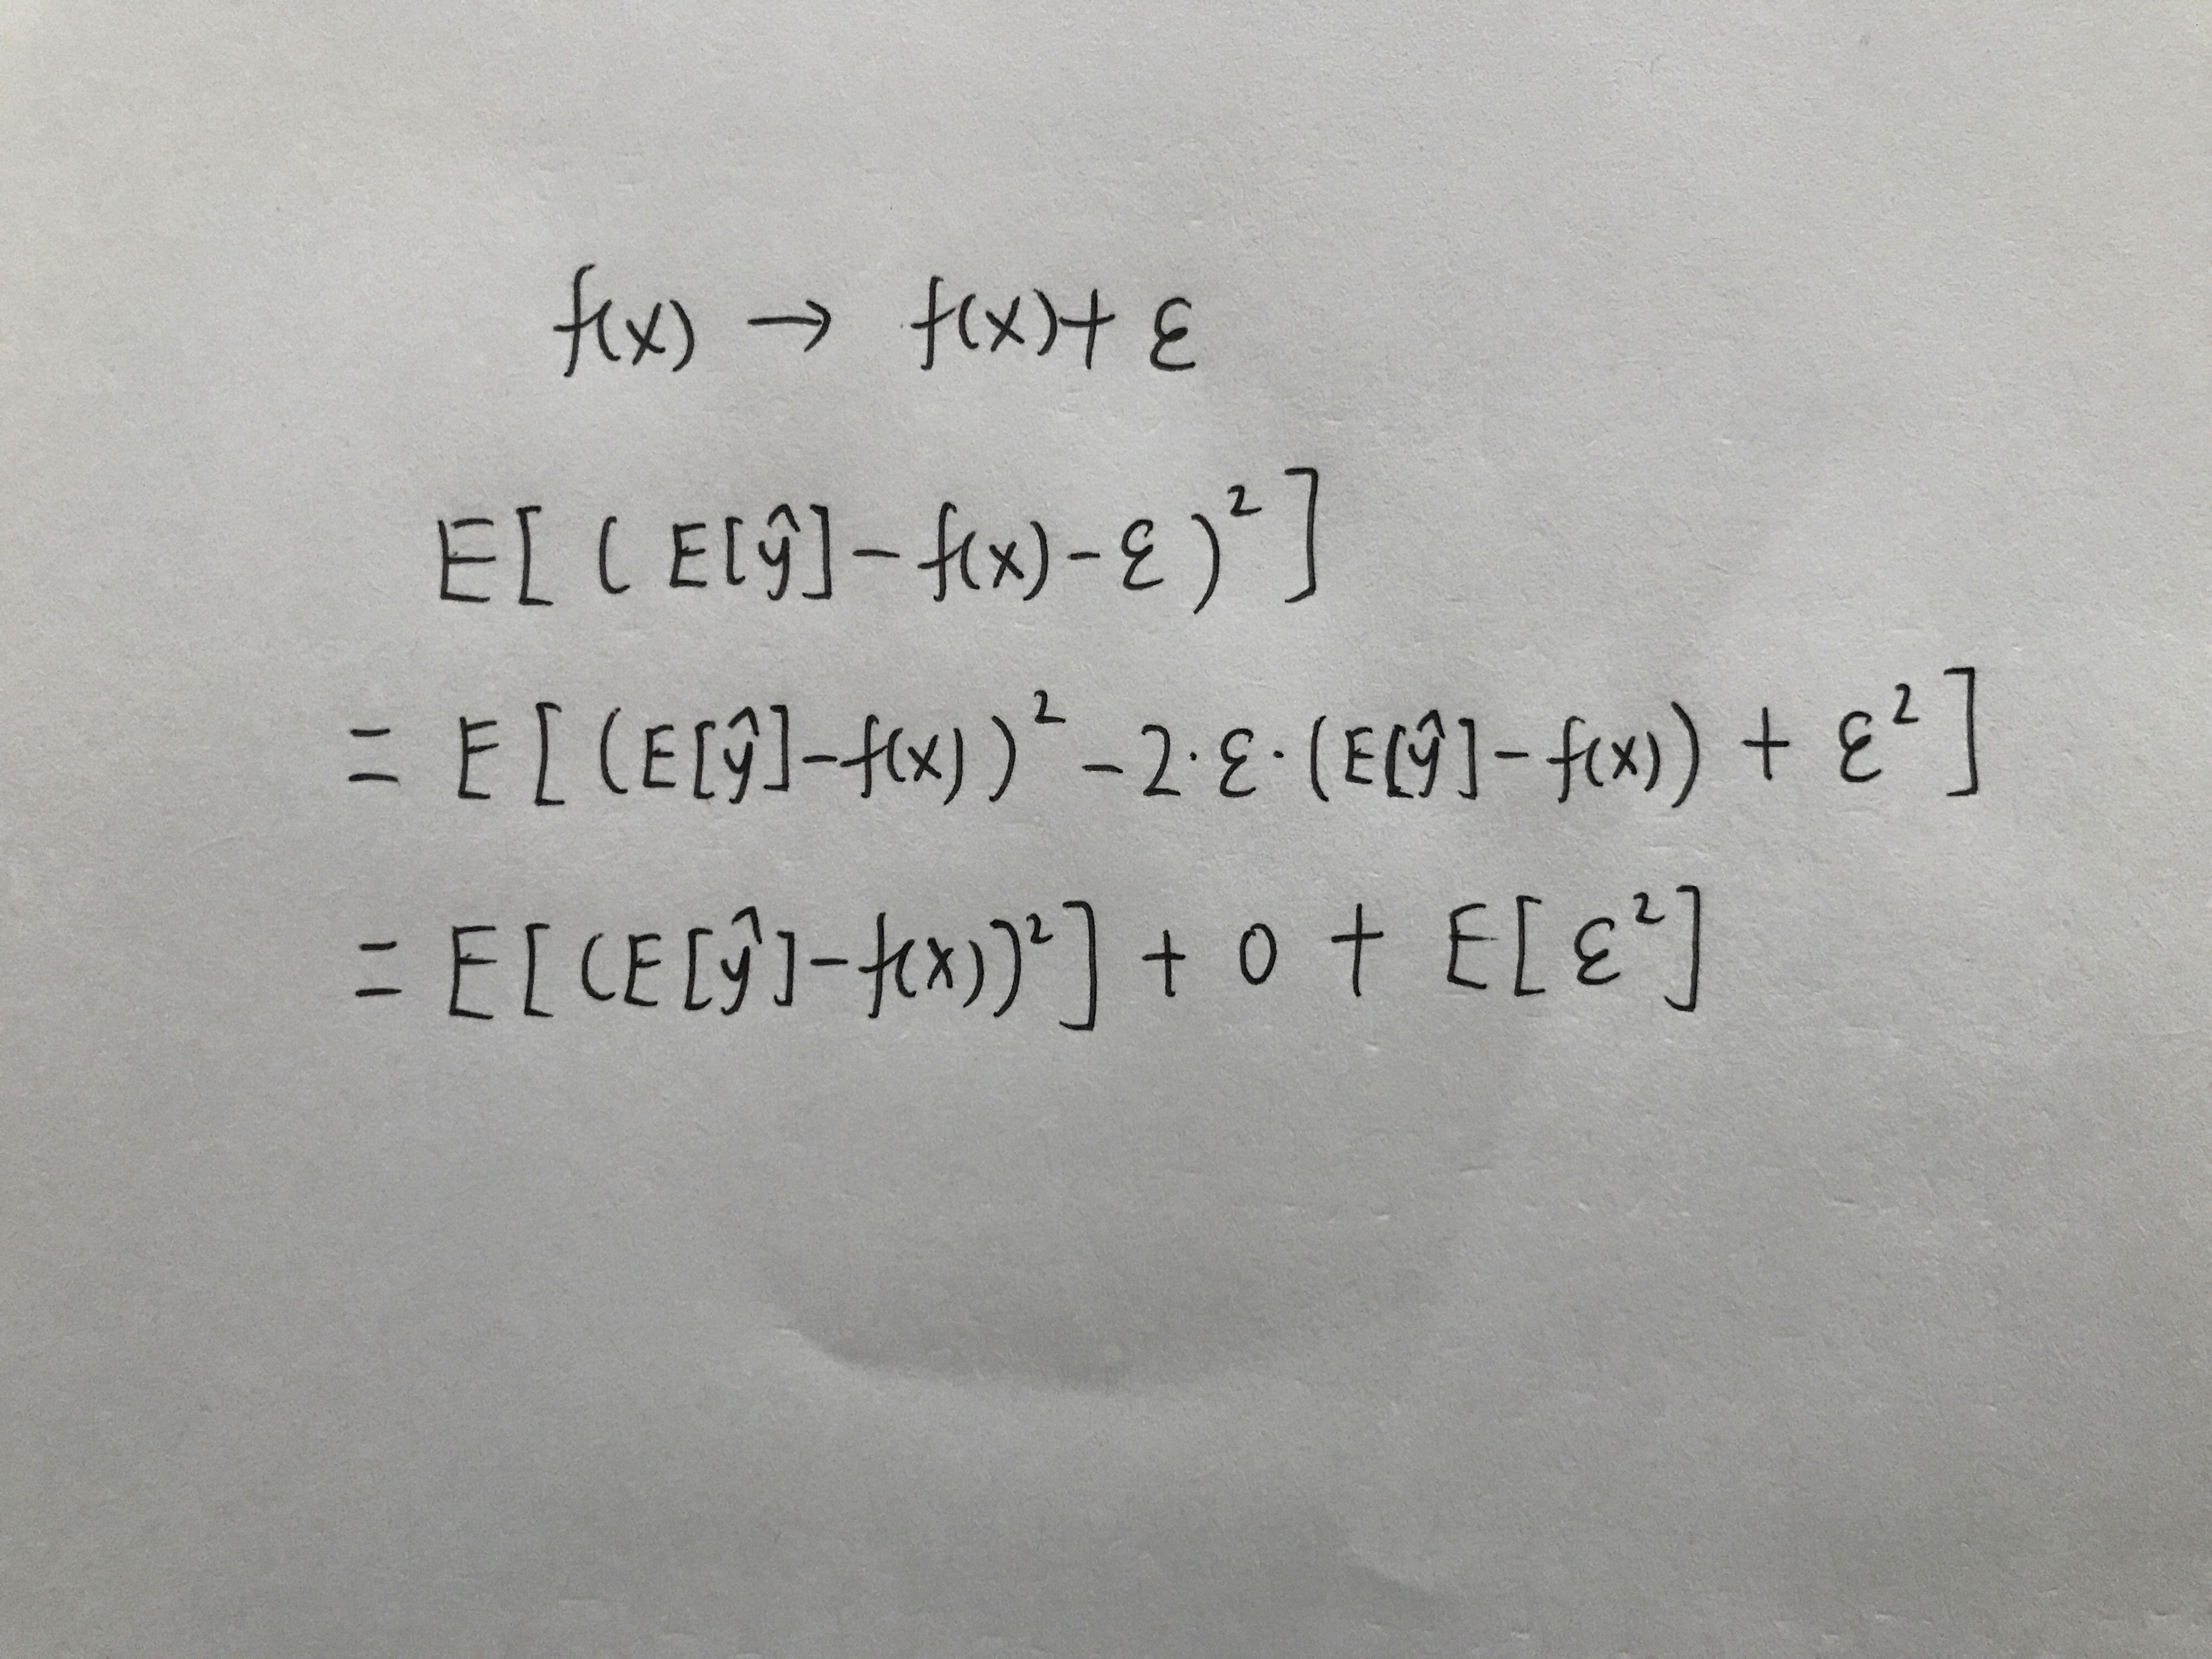 f(x) → f(x) + ε
E[(E[ŷ] - f(x) - ε)²]
= E[(E[ŷ] - f(x))² - 2·ε·(E[ŷ] - f(x)) + ε²]
= E[(E[ŷ] - f(x))²] + 0 + E[ε²]